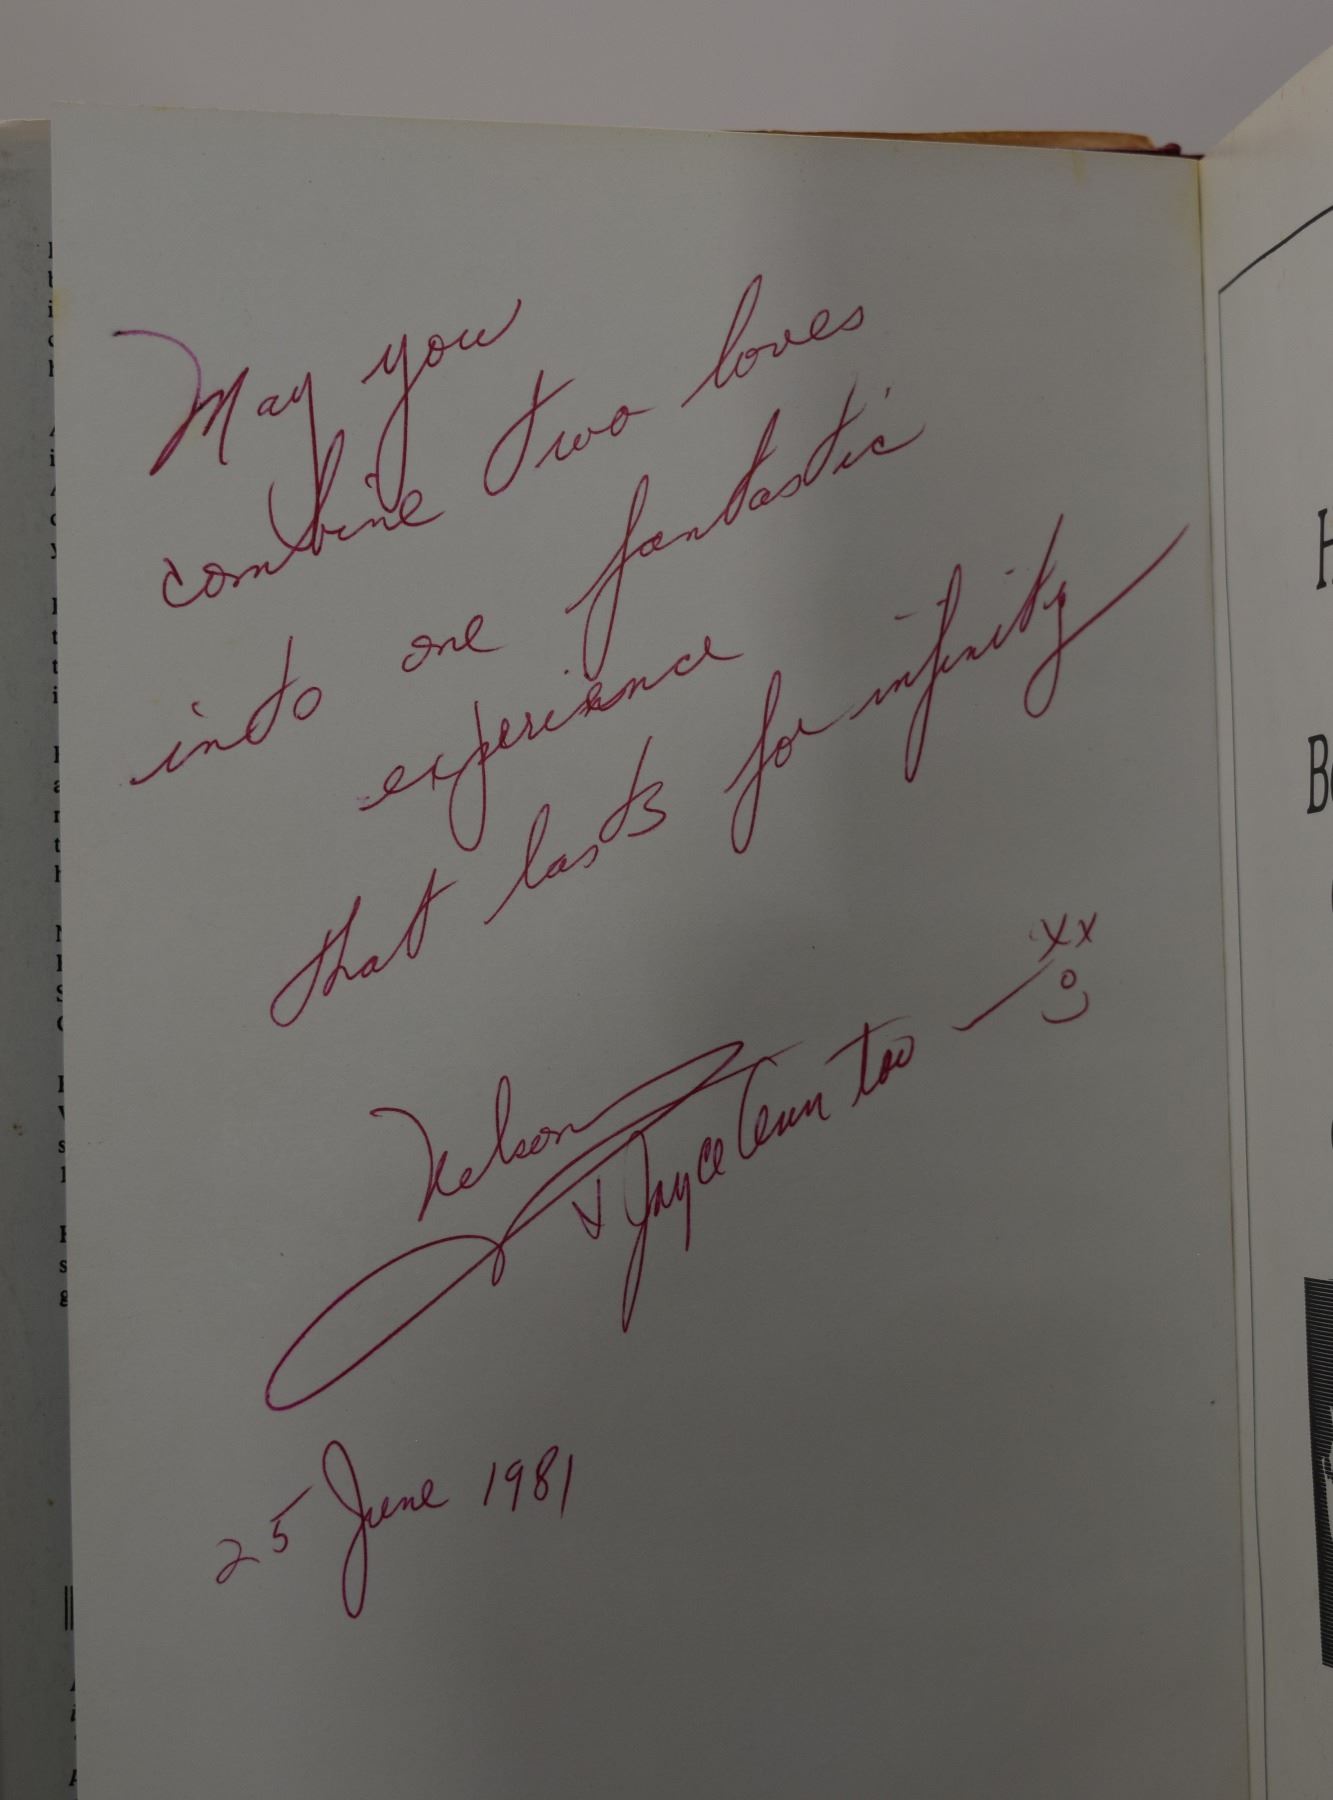 May you
combine two loves
into one fantastic
experience
that lasts for infinity
Nelson
& Joyce Ann too — xx
25 June 1981
H
B